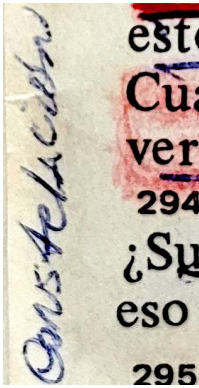 Constelación
este
Cua
ver
294
¿Su
eso
295